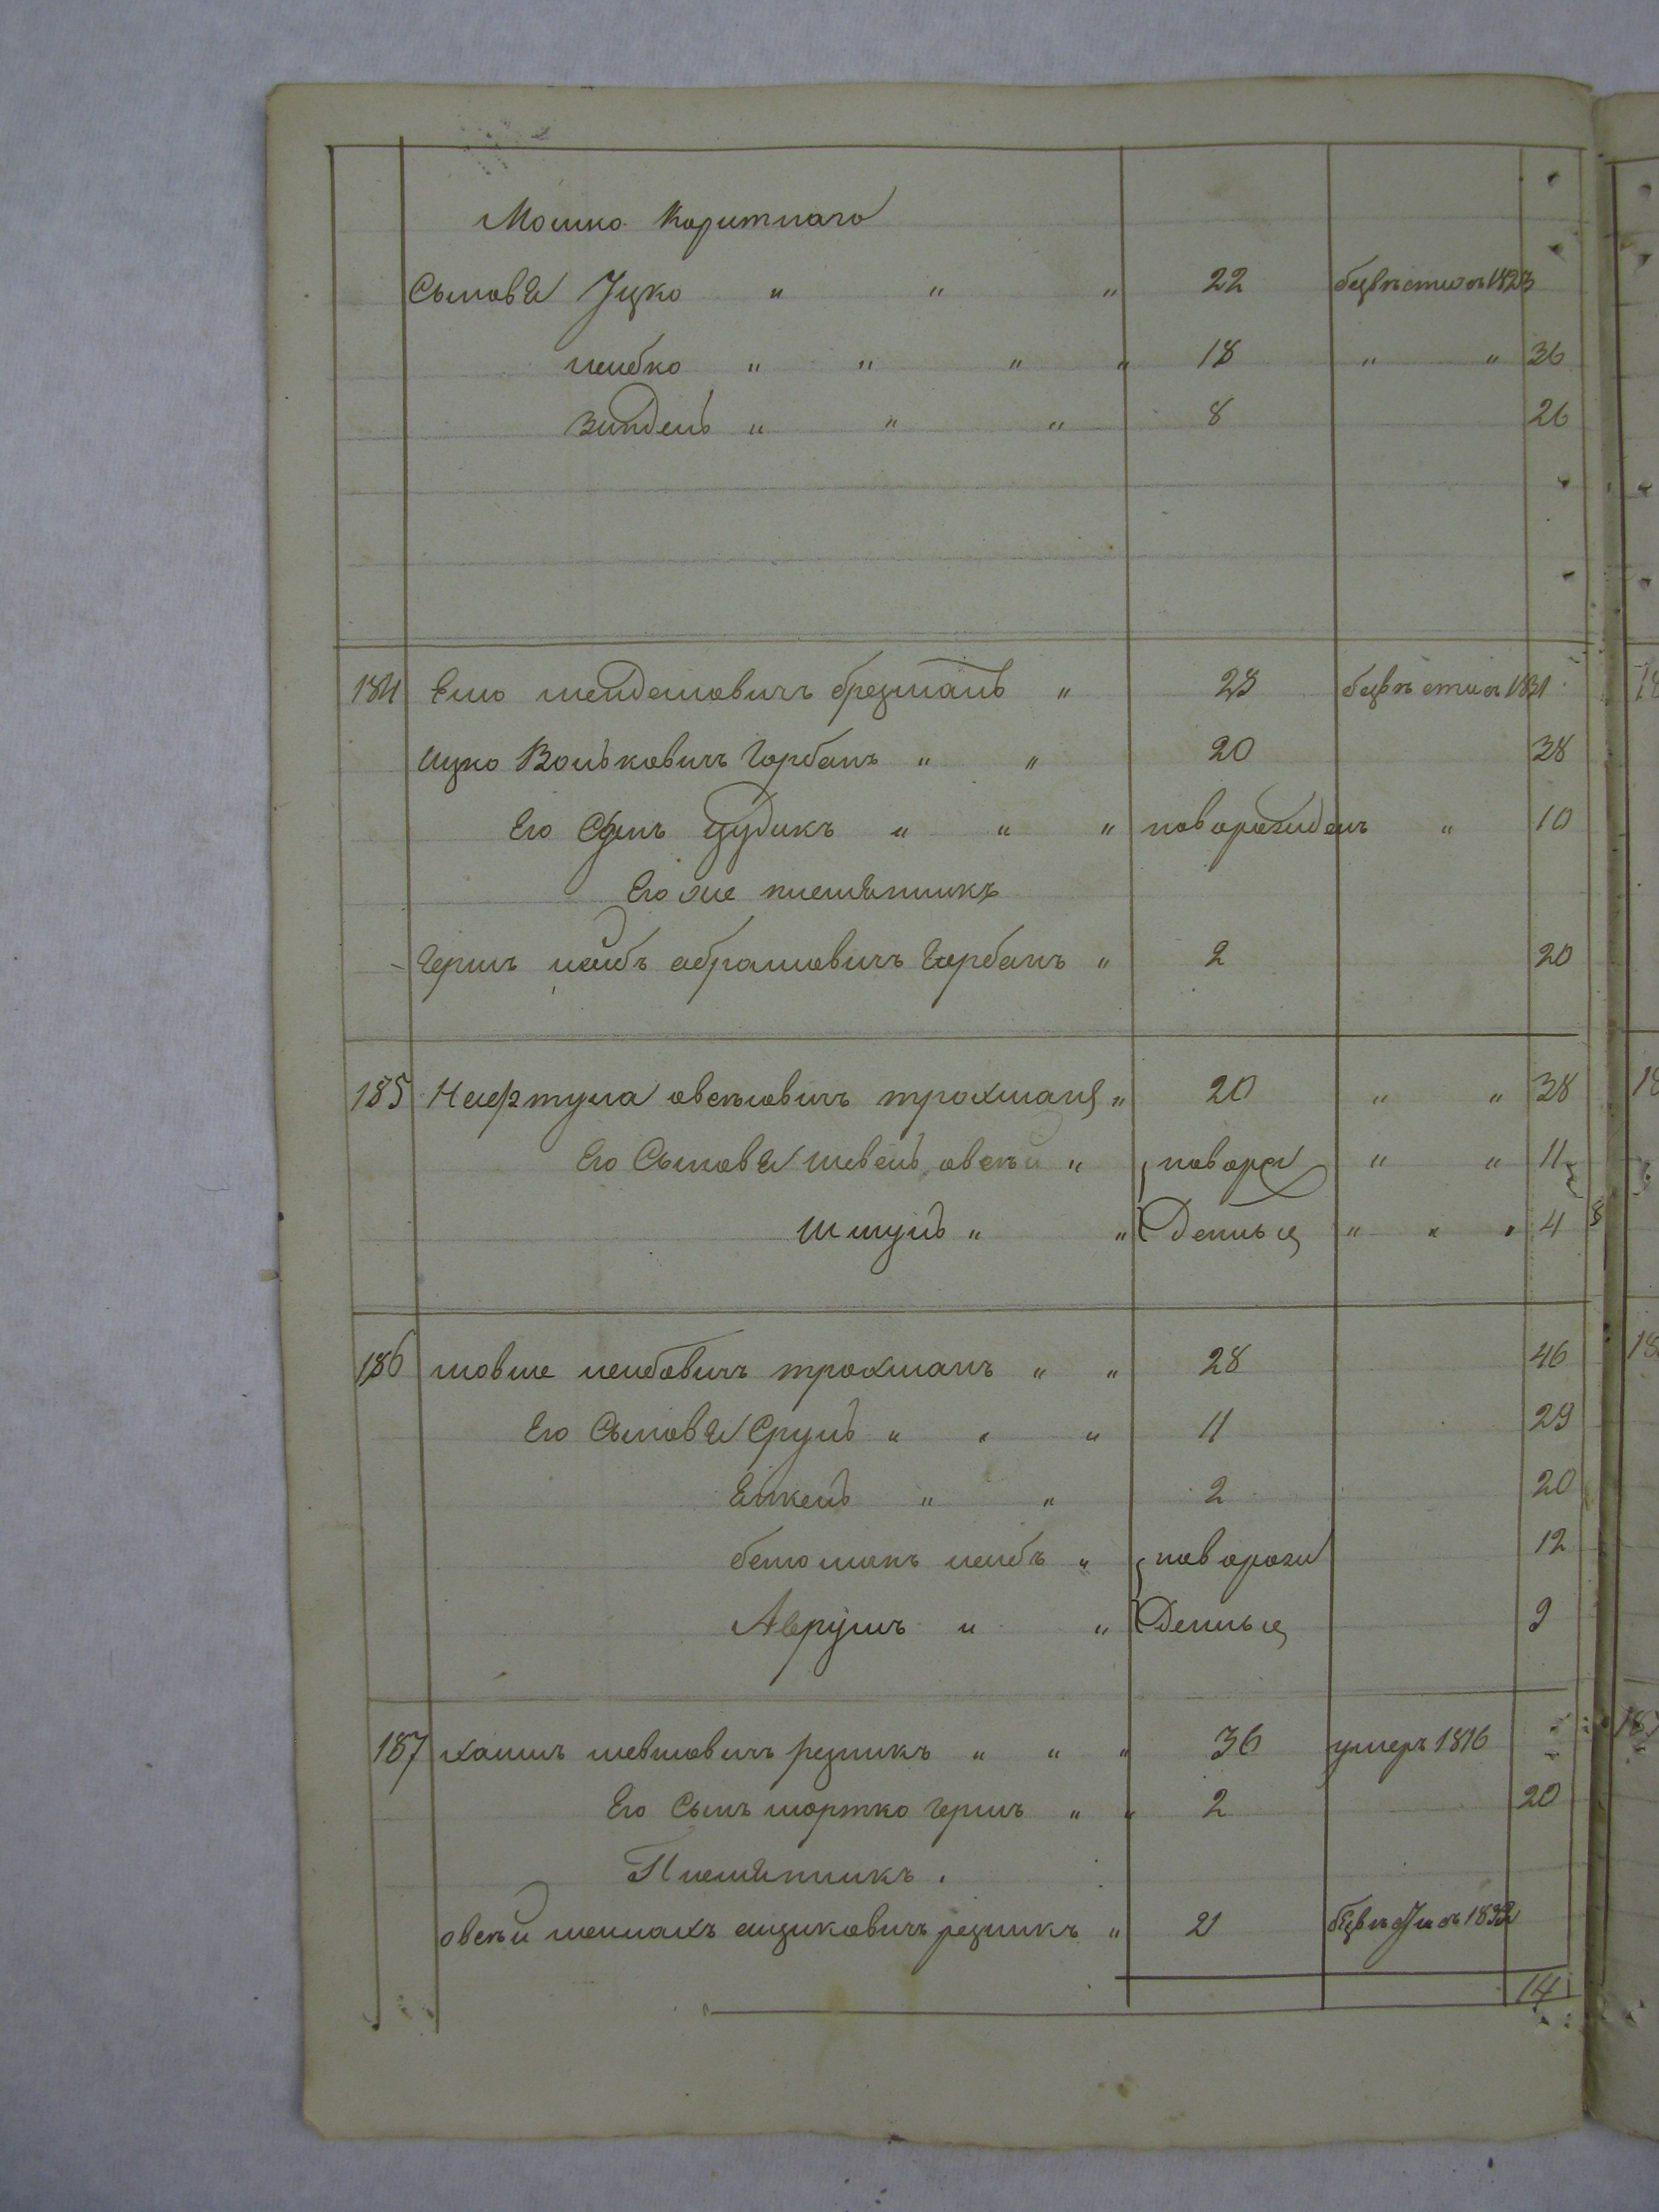 Мошко Коритнаго
Сыновья Іцко " " " 22 безвѣстно съ 1823
лейбко " " " " 18 " " 36
зиндель " " " 8 26
184 Елио мендельовичъ брезманъ " 23 безвѣстно съ 1831
Ицко Вольковичъ Горбанъ " " 20 38
Его Сынъ Дудикъ " " " новорожиденъ " 10
Его же племянникъ
Гершъ лейбъ абрамовичъ Горбанъ " 2 20
185 Нафтула овсѣиовичъ трохманъ " 20 " " 38
Его Сыновья шевель овсѣи " новоро " " 11
Шмуль " "Денныя " " " 4
186 мовше лейбовичъ трохманъ " " 28 46
Его Сыновья Сруль " " " 11 29
Янкель " " 2 20
лейбъ " новорожи 12
Аврумъ " " Денныя 9
187 хаимъ мевшовичъ резникъ " " " 36 умеръ 1816
Его Сынъ мортко гершъ " " 2 20
Племянникъ.
овсѣи шеилахъ ицковичъ резникъ " 21 безвѣстно съ 1832
14